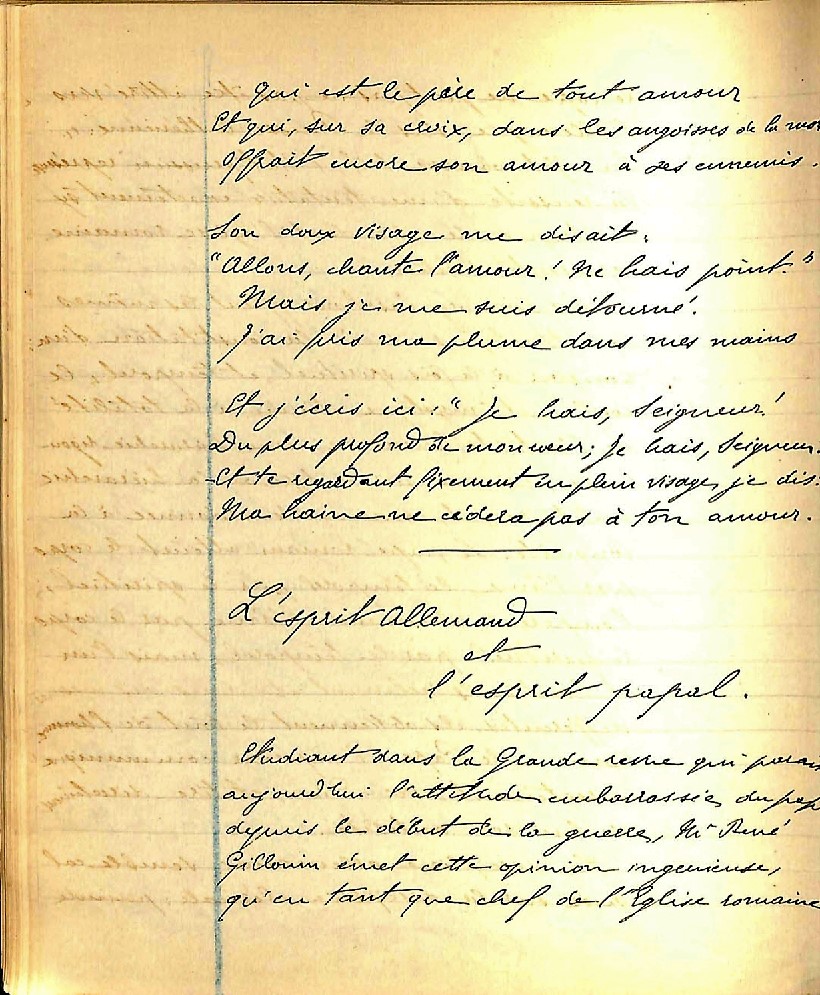 Qui est le père de tout amour
Et qui, sur sa croix, dans les angoisses de la mor
Offrait encore son amour à ses ennemis.
Son doux visage me disait:
"Allons, chante l'amour! Ne hais point."
Mais je me suis détourné.
J'ai pris ma plume dans mes mains
Et j'écris ici: "Je hais, Seigneur!
Du plus profond de mon cœur; Je hais, Seigneur.
Et te regardant fixement en plein visage, je dis:
Ma haine ne cédera pas à ton amour.
L'esprit Allemand
et
l'esprit papal.
Etudiant dans la Grande revue qui parais
aujourd'hui l'attitude embarrassée du pap
depuis le début de la guerre, Mr René
Gillouin émet cette opinion ingenieuse,
qu'en tant que chef de l'Eglise romaine